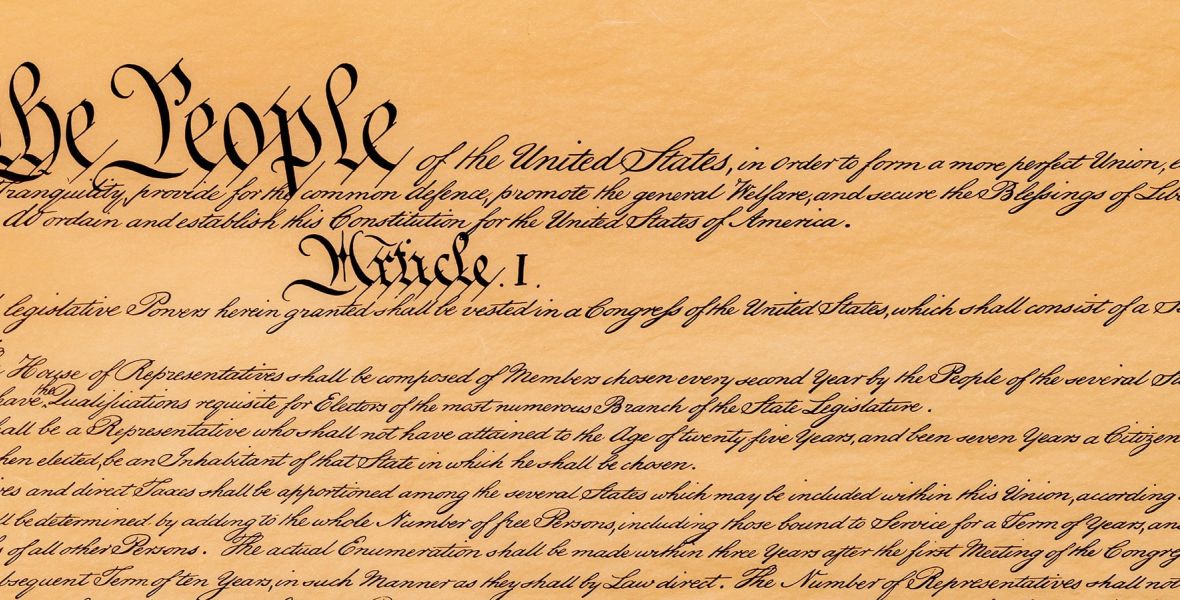 the People of the United States, in order to form a more perfect Union, e
Tranquility, provide for the common defence, promote the general Welfare, and secure the Blessings of Li
do ordain and establish this Constitution for the United States of America.
Article. I.
legislative Powers herein granted shall be vested in a Congress of the United States, which shall consist of a S
House of Representatives shall be composed of Members chosen every second Year by the People of the several St
the
have Qualifications requisite for Electors of the most numerous Branch of the State Legislature.
hall be a Representative who shall not have attained to the Age of twenty five Years, and been seven Years a Citizen
hen elected, be an Inhabitant of that State in which he shall be chosen.
es and direct Taxes shall be apportioned among the several States which may be included within this Union, according
ll be determined by adding to the whole Number of free Persons, including those bound to Service for a Term of Years, and
s of all other Persons. The actual Enumeration shall be made within three Years after the first Meeting of the Congre
bsequent Term of ten Years, in such Manner as they shall by Law direct. The Number of Representatives shall not